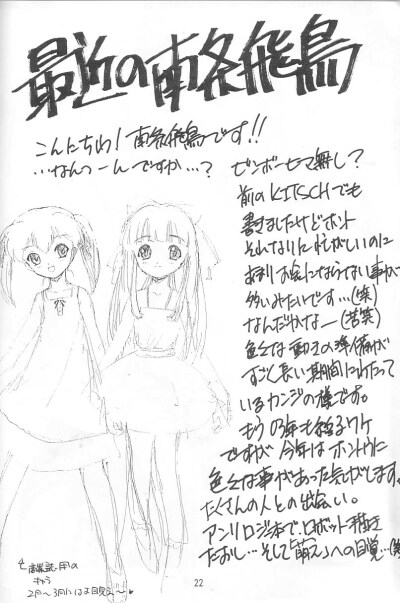 最近の南条飛鳥
こんにちわ！南条飛鳥です!!
…なんつーんですか…？
ビンボーヒマ無し？
前のKITSCHでも
書きましたけどホント
それなりに忙がしいのに
あまりお金にならない事が
多いみたいです…(笑)
なんだかなー(苦笑)
色々な動きの準備が
すごく長い期間にわたって
いるカンジの様です。
もう03年も終るワケ
ですが今年はホントウに
色々な事があった気がします。
たくさんの人との出会い。
アンソロジ本で、ロボット
たおし…そして「萌え」への目覚…
用の
2月〜3月には
22